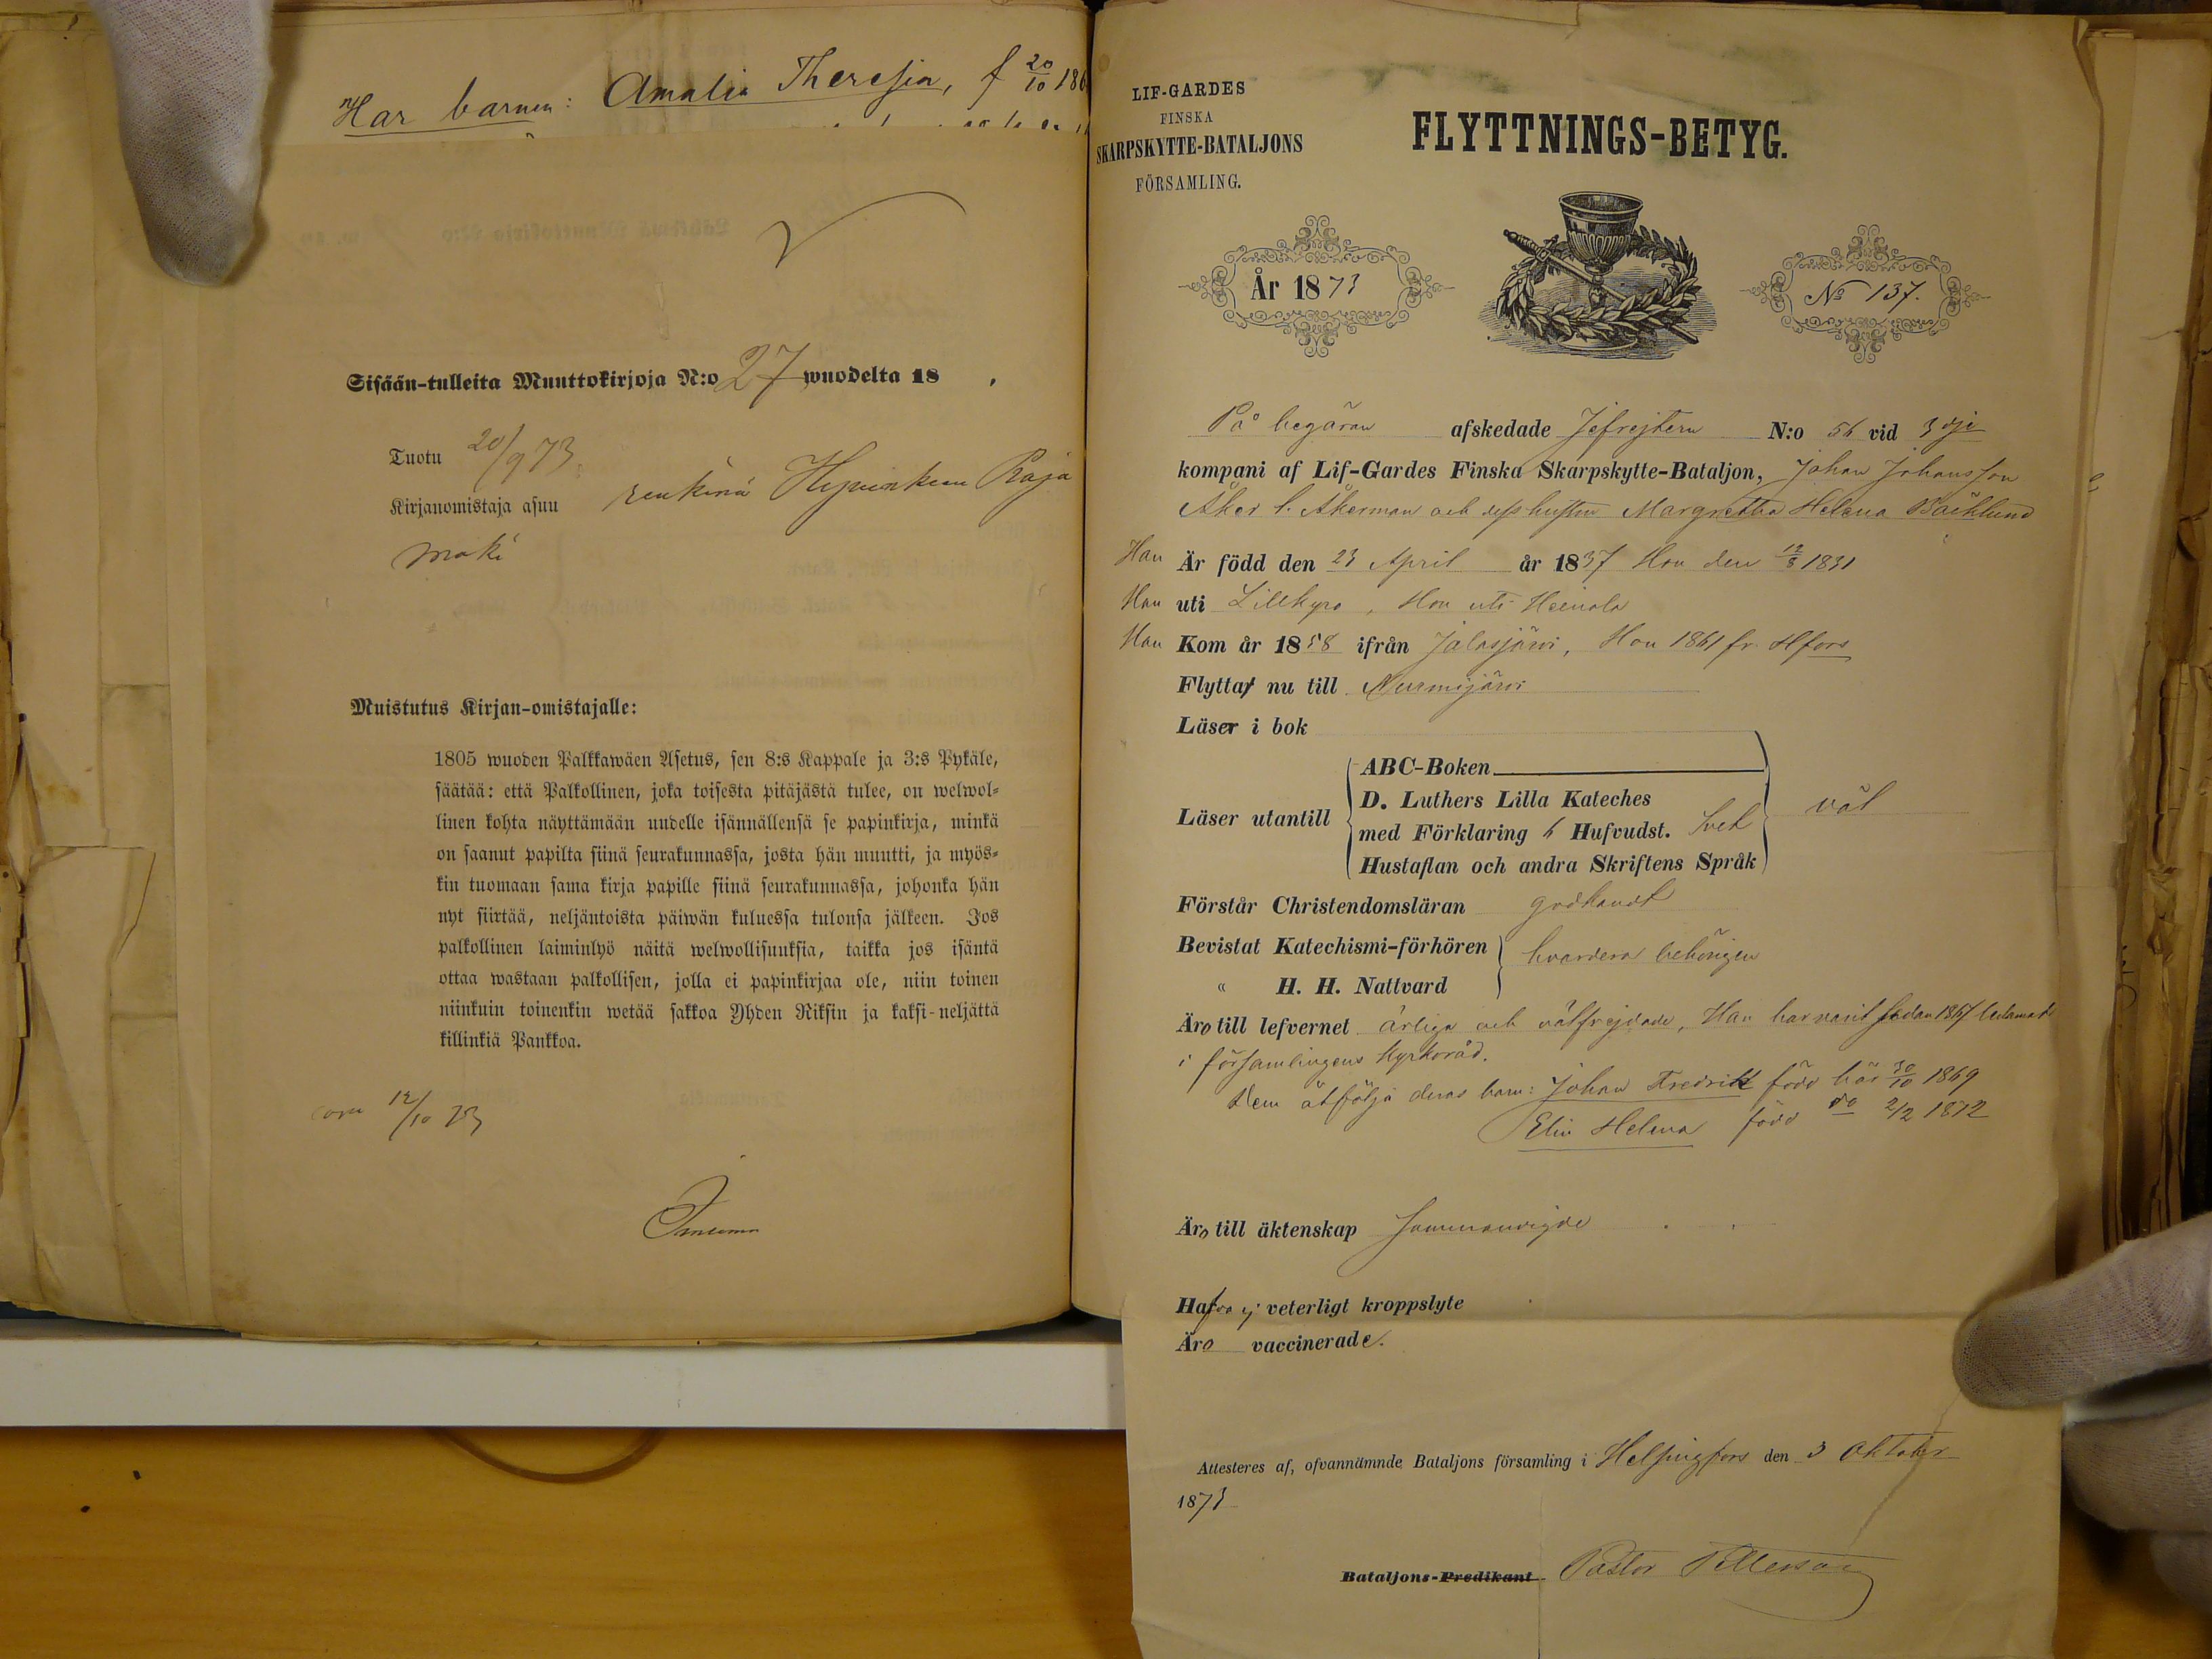 Har barnen: Amalia Theresia, f 20/10 186
Sisään-tulleita Muuttokirjoja N:o 27 wuodelta 18 .
Tuotu 20/9 73
Kirjanomistaja asuu renkinä Hyvinkään Raja
mäki
Muistutus Kirjan-omistajalle:
1805 wuoden Palkkawäen Asetus, sen 8:s Kappale ja 3:s Pykäle,
säätää: että Palkollinen, joka toisesta pitäjästä tulee, on welwol-
linen kohta näyttämään uudelle isännällensä se papinkirja, minkä
on saanut papilta siinä seurakunnassa, josta hän muutti, ja myös-
kin tuomaan sama kirja papille siinä seurakunnassa, johonka hän
nyt siirtää, neljäntoista päiwän kuluessa tulonsa jälkeen. Jos
palkollinen laiminlyö näitä welwollisuuksia, taikka jos isäntä
ottaa wastaan palkollisen, jolla ei papinkirjaa ole, niin toinen
niinkuin toinenkin wetää sakkoa Yhden Riksin ja kaksi-neljättä
killinkiä Pankkoa.
12/10 73
LIF-GARDES
FINSKA
SKARPSKYTTE-BATALJONS
FÖRSAMLING.
FLYTTNINGS-BETYG.
År 1873
№ 137.
På begäran afskedade Jefrejtern N:o 56 vid 3dje
kompani af Lif-Gardes Finska Skarpskytte-Bataljon, Johan Johansson
Åker l. Åkerman och dess hustru Margretha Helena Bäcklund
Han Är född den 23 April år 1837 Hon den 12/8 1831
Han uti Lillkyro, Hon uti Heinola
Han Kom år 1858 ifrån Jalasjärvi, Hon 1861 fr. Hfors
Flytta nu till Nurmijärvi
Läser i bok
ABC-Boken
D. Luthers Lilla Kateches
Läser utantill med Förklaring 6 Hufvudst. väl
Hustaflan och andra Skriftens Språk
Förstår Christendomsläran godkändt
Bevistat Katechismi-förhören hvardera behörigen
" H. H. Nattvard
Äro till lefvernet ärliga och välfrejdade, Han har varit sedan 1867 ledamot
i församlingens Kyrkoråd.
Dem åtfölja deras barn: Johan Fredrik född här 30/10 1869
Elin Helena född do 2/2 1872
Äro till äktenskap Sammanvigde
Hafva ej veterligt kroppslyte
Äro vaccinerade.
Attesteres af, ofvannämnde Bataljons församling i Helsingfors den 3 Oktober
1873
Bataljons-Predikant Pastor